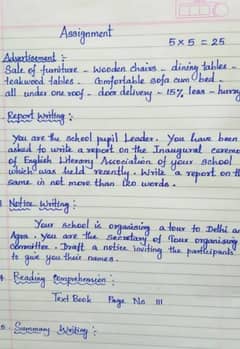 Assignment
5 x 5 = 25
Advertisement :-
Sale of furniture - wooden chairs - dining tables -
teakwood tables. Comfortable sofa cum bed -
all under one roof - door delivery - 15% less - hurry
Report Writing :-
You are the school pupil leader. You have been
asked to write a report on the Inaugural ceremo
of English Literary Association of your school
which was held recently. Write a report on th
same in not more than 120 words.
Notice Writing :
Your school is organising a tour to Delhi an
Agra. you are the secretary of Tour organising
committee. Draft a notice inviting the participants
to give you their names.
4. Reading Comprehension :
Text Book Page No 111
5. Summary Writing :